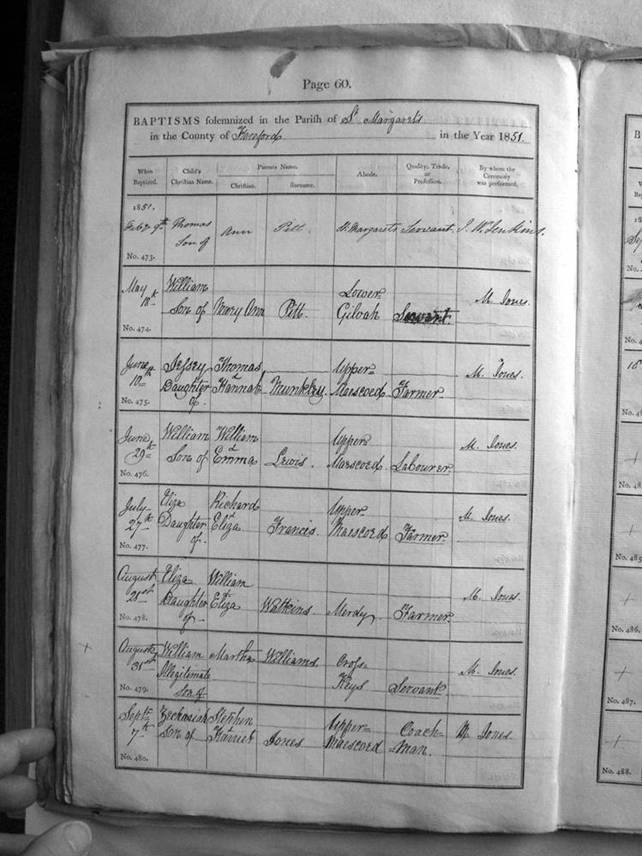 Page 60.
BAPTISMS solemnized in the Parish of St. Margarets
in the County of Hereford in the Year 1851.
When Baptized. Child's Christian Name. Parents Name. Christian. Surname. Abode. Quality, Trade, or Profession. By whom the Ceremony was performed.
1851.
9th Thomas Son of Ann Pitt St. Margarets Servant J. W. Jenkins.
No. 473.
May 18th William Son of Mary Ann Pitt. Lower Gilvah Servant. M. Jones.
No. 474.
June Daughter of Thomas & Hannah Munkley. Upper Maescoed Farmer M. Jones.
No. 475.
June 29th William Son of William & Emma Lewis. Upper Maescoed Labourer M. Jones.
No. 476.
July 27th Eliza Daughter of Richard & Eliza Francis. Upper Maescoed Farmer M. Jones.
No. 477.
August Eliza Daughter of William & Eliza Watkins Merdy Farmer M. Jones.
No. 478.
August 31st William Illegitimate Son of Martha Williams Cross Keys Servant M. Jones.
No. 479.
Septr. 7th Zechariah Son of Stephen & Harriet Jones Upper Maescoed Coach-man. M. Jones.
No. 480.
No. 486.
No. 487.
No. 488.